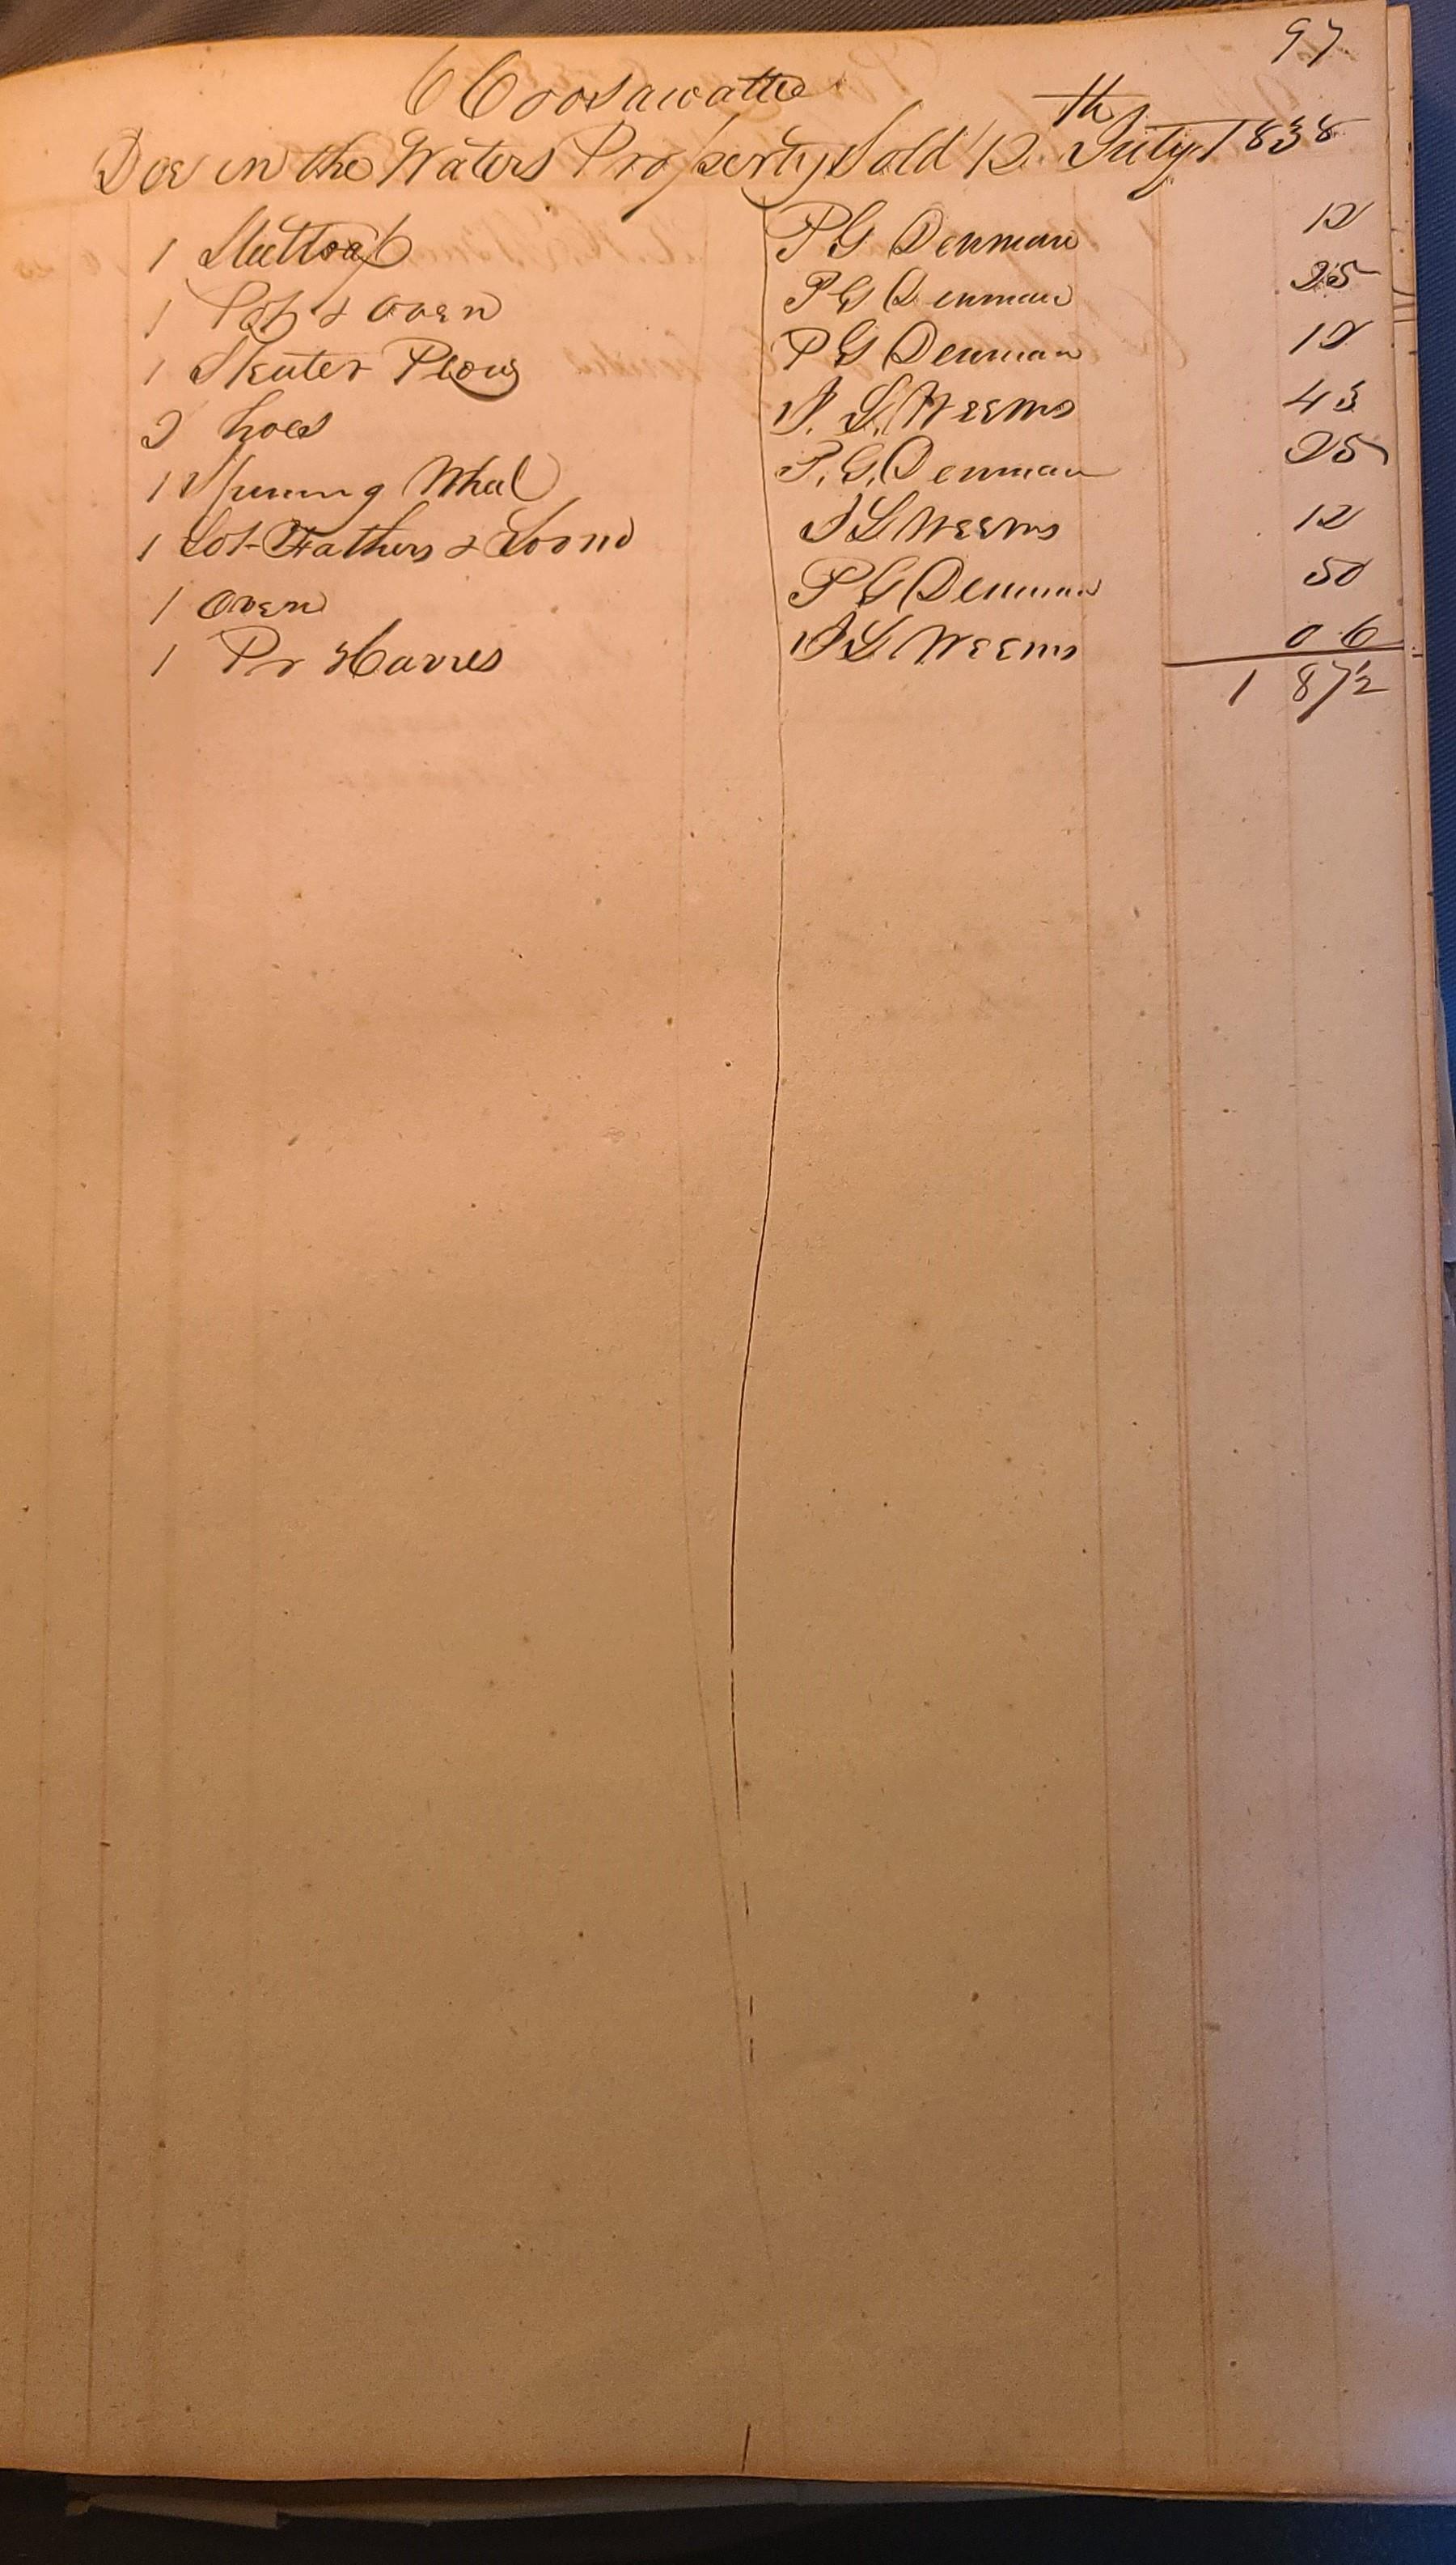 97
Coosawattee
Doe in the Waters Property Sold 12th July 1838
1 Mattoax P G Denman 12
1 Pot & oven P G Denman 25
1 Skuter Plow P G Denman 12
2 hoes S. L. Weems 43
1 Spuning Wheel P. G. Denman 25
1 Lot Fathers & Loom S L Weems 12
1 oven P G Denman 50
1 Pr Hames S L Weems 06
1 87½